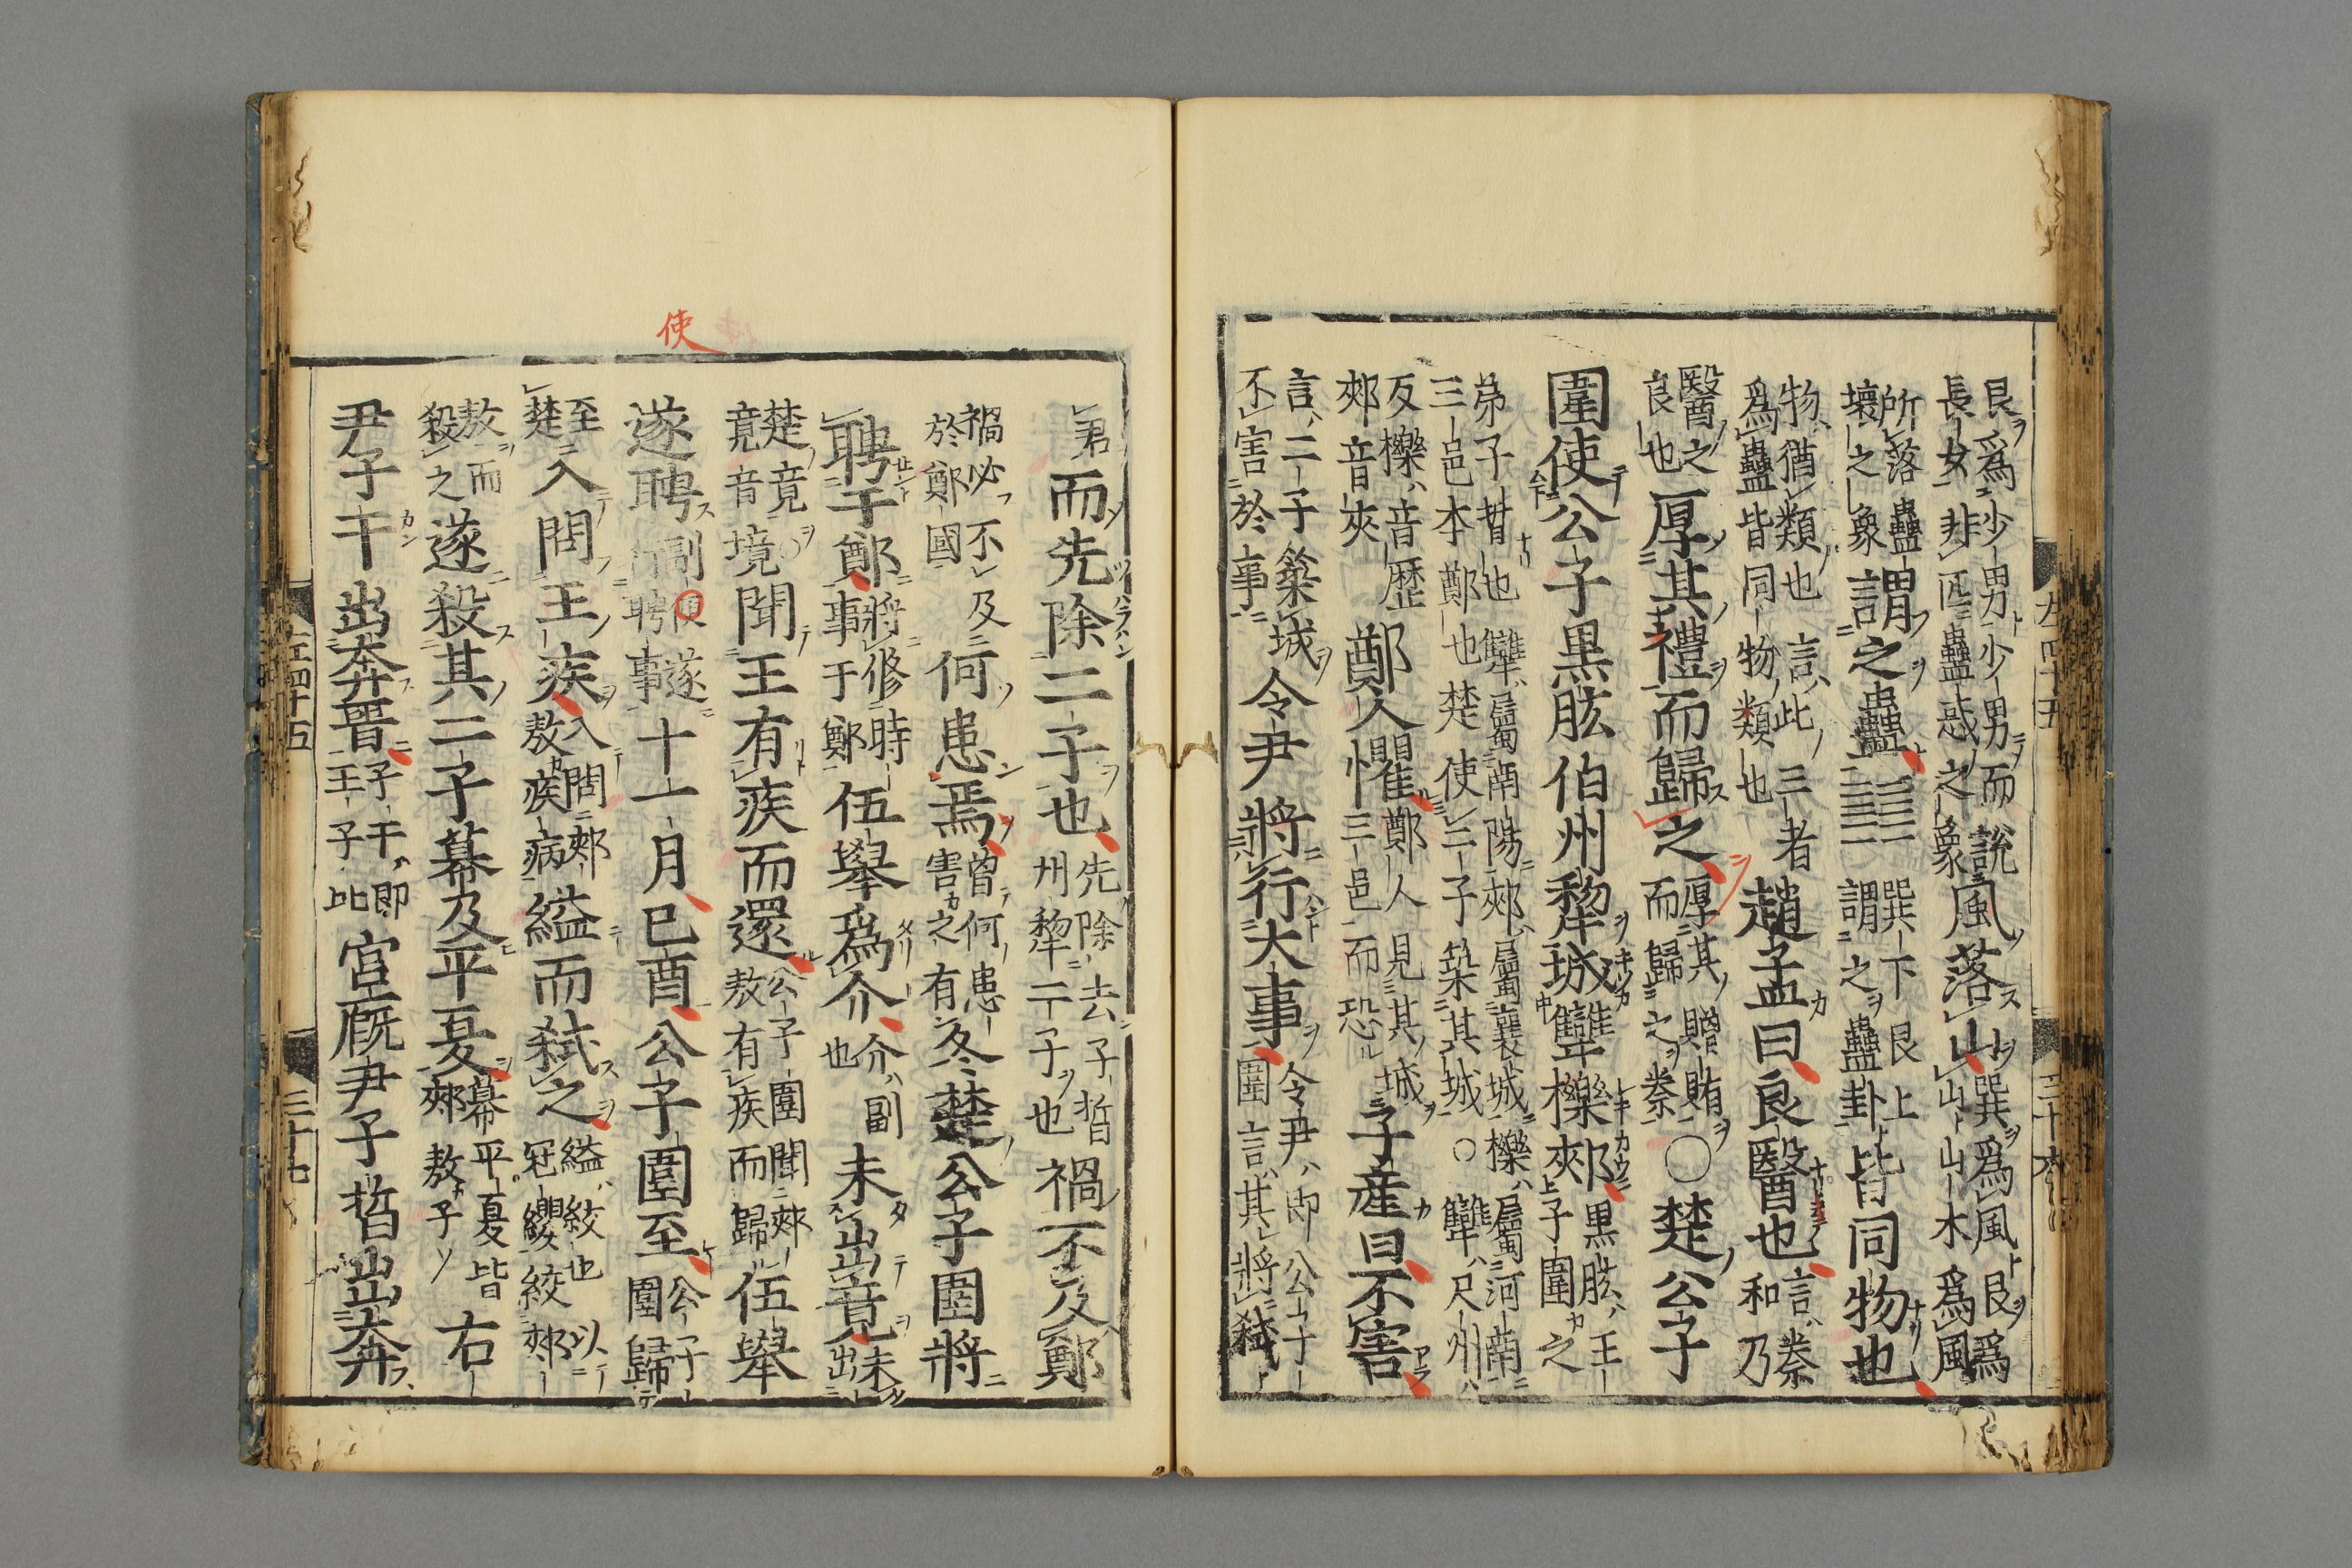 艮爲少男少男而說
長女非匹蠱惑之象
風落山
巽爲風艮爲
山山木爲風
所落蠱
壞之象
謂之蠱䷑
巽下艮上
謂之蠱卦
皆同物也
物猶類也言此三者
爲蠱皆同物類也
趙孟曰良醫也
言秦
和乃
醫之
良也
厚其禮而歸之
厚其贈賄
而歸之秦
○楚公子
圍使公子黑肱伯州犂城犫櫟郟
黑肱王
子圍之
弟子晳也犫屬南陽郟屬襄城櫟屬河南
三邑本鄭也楚使二子築其城○犫尺州
反櫟音歷
郟音夾
鄭人懼
鄭人見其城
三邑而恐
子產曰不害
言二子築城
不害於事
令尹將行大事
令尹即公子
圍言其將弑
左四十五
三十六
使
君
而先除二子也
先除去子晳
州犂二子也
禍不及鄭
禍必不及
於鄭國
何患焉
曾何患
害之有
冬楚公子圍將
聘于鄭
將修時
事于鄭
伍舉爲介
介副
也
未出竟
未
出
楚竟○
竟音境
聞王有疾而還
公子圍聞郟
敖有疾而歸
伍舉
遂聘
副使遂
行聘事
十一月己酉公子圍至
公子
圍歸
至
楚
入問王疾
入問郟
敖疾病
縊而弑之
縊絞也以
冠纓絞郟
敖而
殺之
遂殺其二子幕及平夏
幕平夏皆
郟敖子
右
尹子干出奔晉
子干即
王子比
宮廐尹子晳出奔
左四十五
三十七